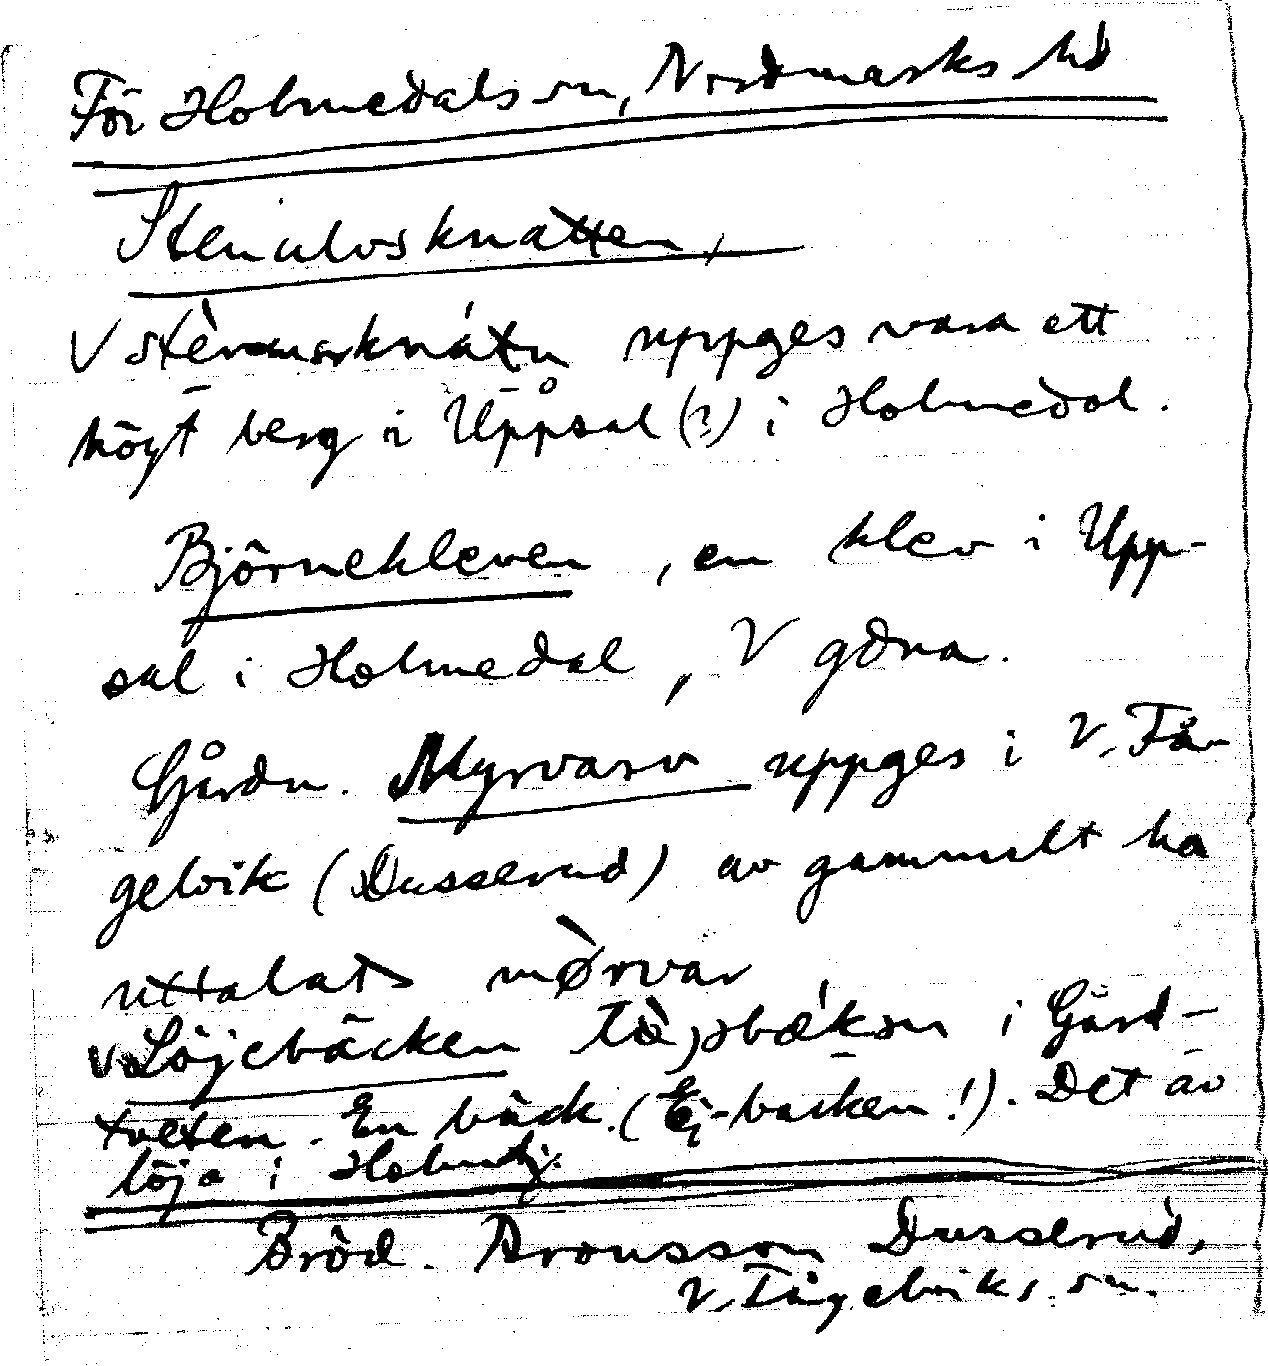 För Holmedals sn, Nordmarks hd
Stenulvsknatten,
V stènarsknátn uppges vara ett
högt berg i Uppsal (?) i Holmedal.
Björnekleven, en klev i Upp-
sal i Holmedal, V gdna.
Gårdn. Myrvarv uppges i V. Få-
gelvik (Dusserud) av gammalt ha
uttalats mø̀rvar
V Löjebäcken i Gård-
tveten. En bäck. (Ej -backen!). Det är
löja i Holmedj.
Bröd. Aronsson Dusserud,
V. Fågelviks sn.